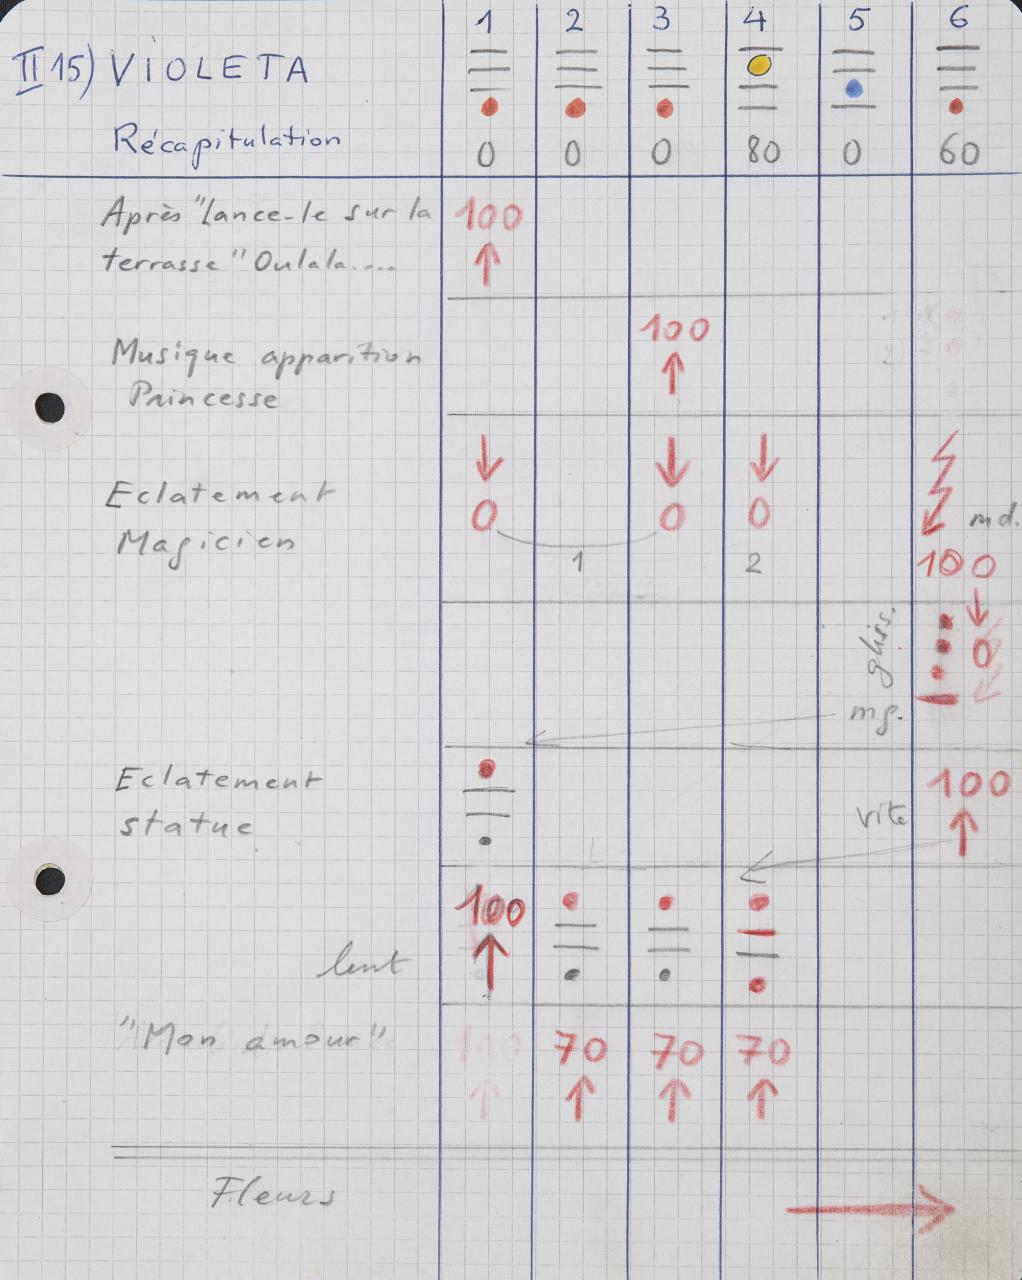 1 2 3 4 5 6
II 15) VIOLETA
Récapitulation 0 0 0 80 0 60
Après "Lance-le sur la 100
terrasse" Oulala....
100
Musique apparition
Princesse
Eclatement
0 0 0 md.
Magicien 1 2 100
gliss. 0
mg.
Eclatement 100
statue vite
100
lent
"Mon amour" 100 70 70 70
Fleurs